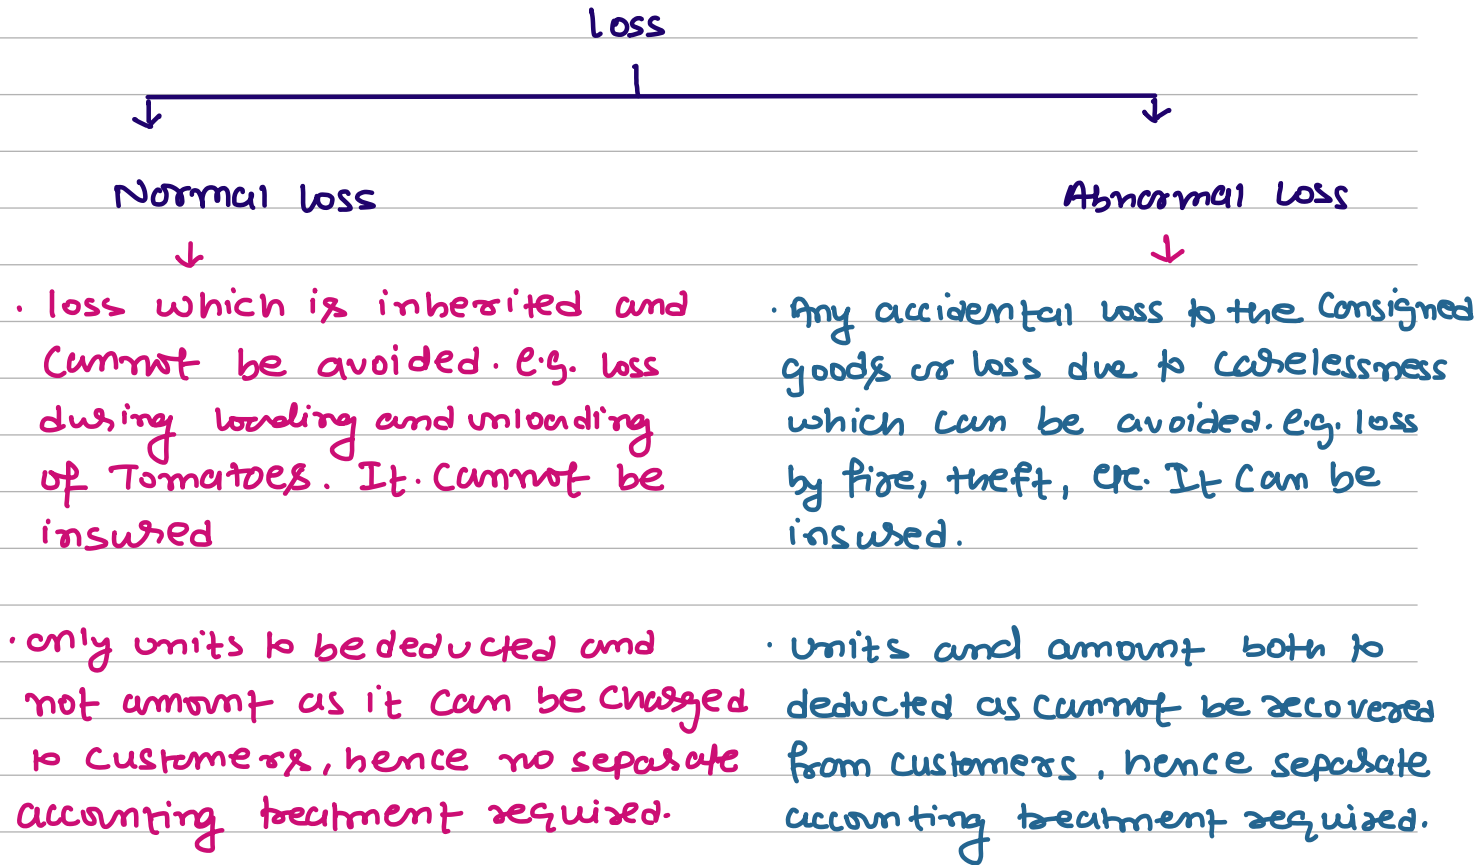 loss
Normal loss
Abnormal loss
· loss which is inherited and
cannot be avoided. e.g. loss
during loading and unloading
of Tomatoes. It. cannot be
insured
· only units to be deducted and
not amount as it can be charged
to customers, hence no separate
accounting treatment required.
· Any accidental loss to the consigned
goods or loss due to carelessness
which can be avoided. e.g. loss
by fire, theft, etc. It can be
insured.
· units and amount both to
deducted as cannot be recovered
from customers, hence separate
accounting treatment required.